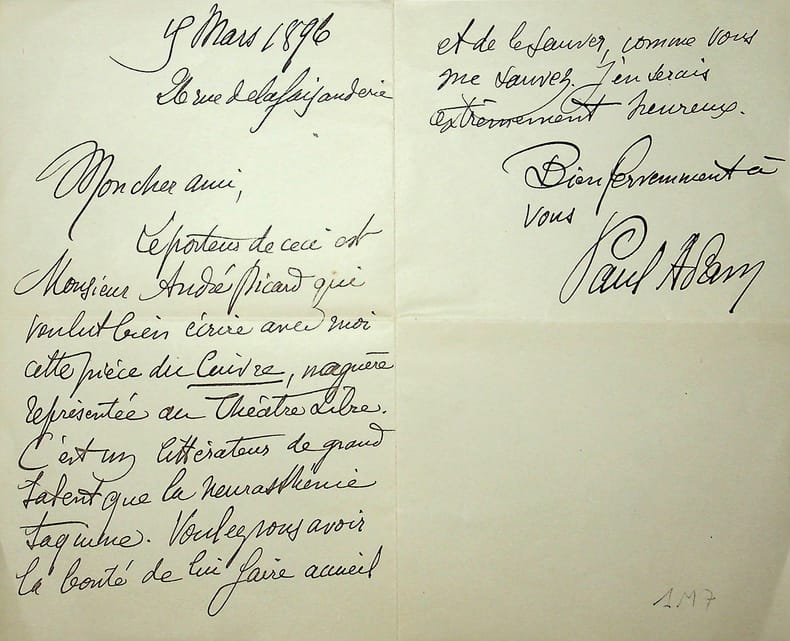 5 Mars 1896
26 rue de la faisanderie
Mon cher ami,
Le porteur de ceci est
Monsieur André Picard qui
voulut bien écrire avec moi
cette pièce du Cuivre, naguère
représentée au Théâtre Libre.
C'est un littérateur de grand
talent que la neurasthénie
taquine. Voulez vous avoir
la bonté de lui faire accueil
et de le sauver, comme vous
me sauvez. J'en serais
extrêmement heureux.
Bien fervemment à
vous
Paul Adam
1M7